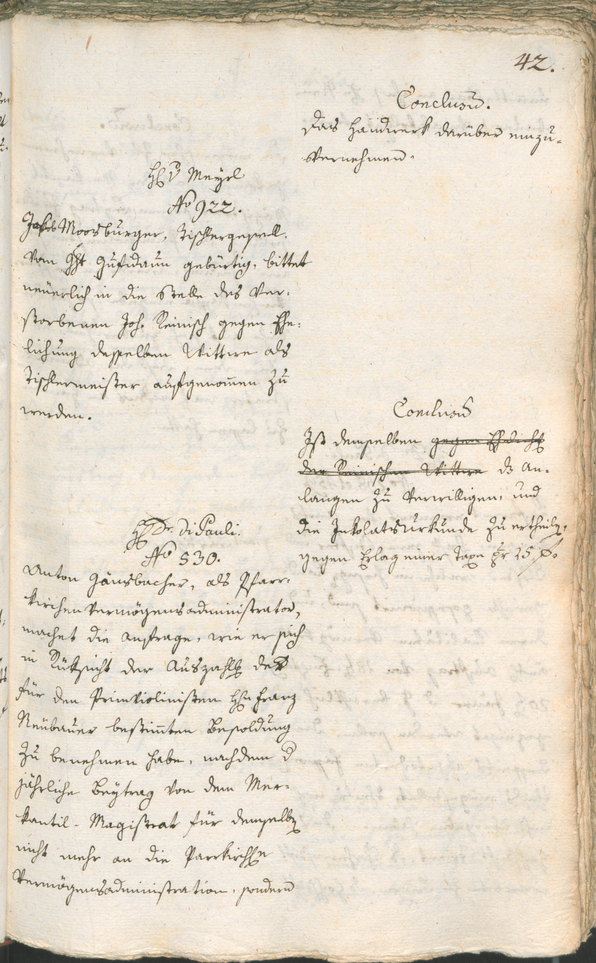 42.
Conclusum.
Das Handwerk darüber einzu-
vernehmen.
H. v Meyrl
No 922.
Jakob Moosburger, Tischlergesell.
vom Ght Gufidaun gebürtig, bittet
neuerlich in die Stelle des ver-
storbenen Joh. Reinisch gegen Ehe-
lichung desselben Wittwe als
Tischlermeister aufgenommen zu
werden.
Conclusum
Ist demselben gegen Ehelichg
der Reinischen Wittwe das An-
langen zu verwilligen, und
die Inkolatsurkunde zu ertheilen
gegen Erlag einer Taxe per 25 f.
H. Dr. Di Pauli.
No 530.
Anton Gänsbacher, als Pfarr-
kirchenvermögensadministrator,
machet die Anfrage, wie er sich
in Rüksicht der Auszahlg der
für den Primviolinisten Hrn Franz
Neubauer bestimmten Besoldung
zu benehmen habe, nachdem d
jährliche Beytrag von dem Mer-
kantil-Magistrat für denselben
nicht mehr an die Parrkirche
Vermögensadministration, sondern